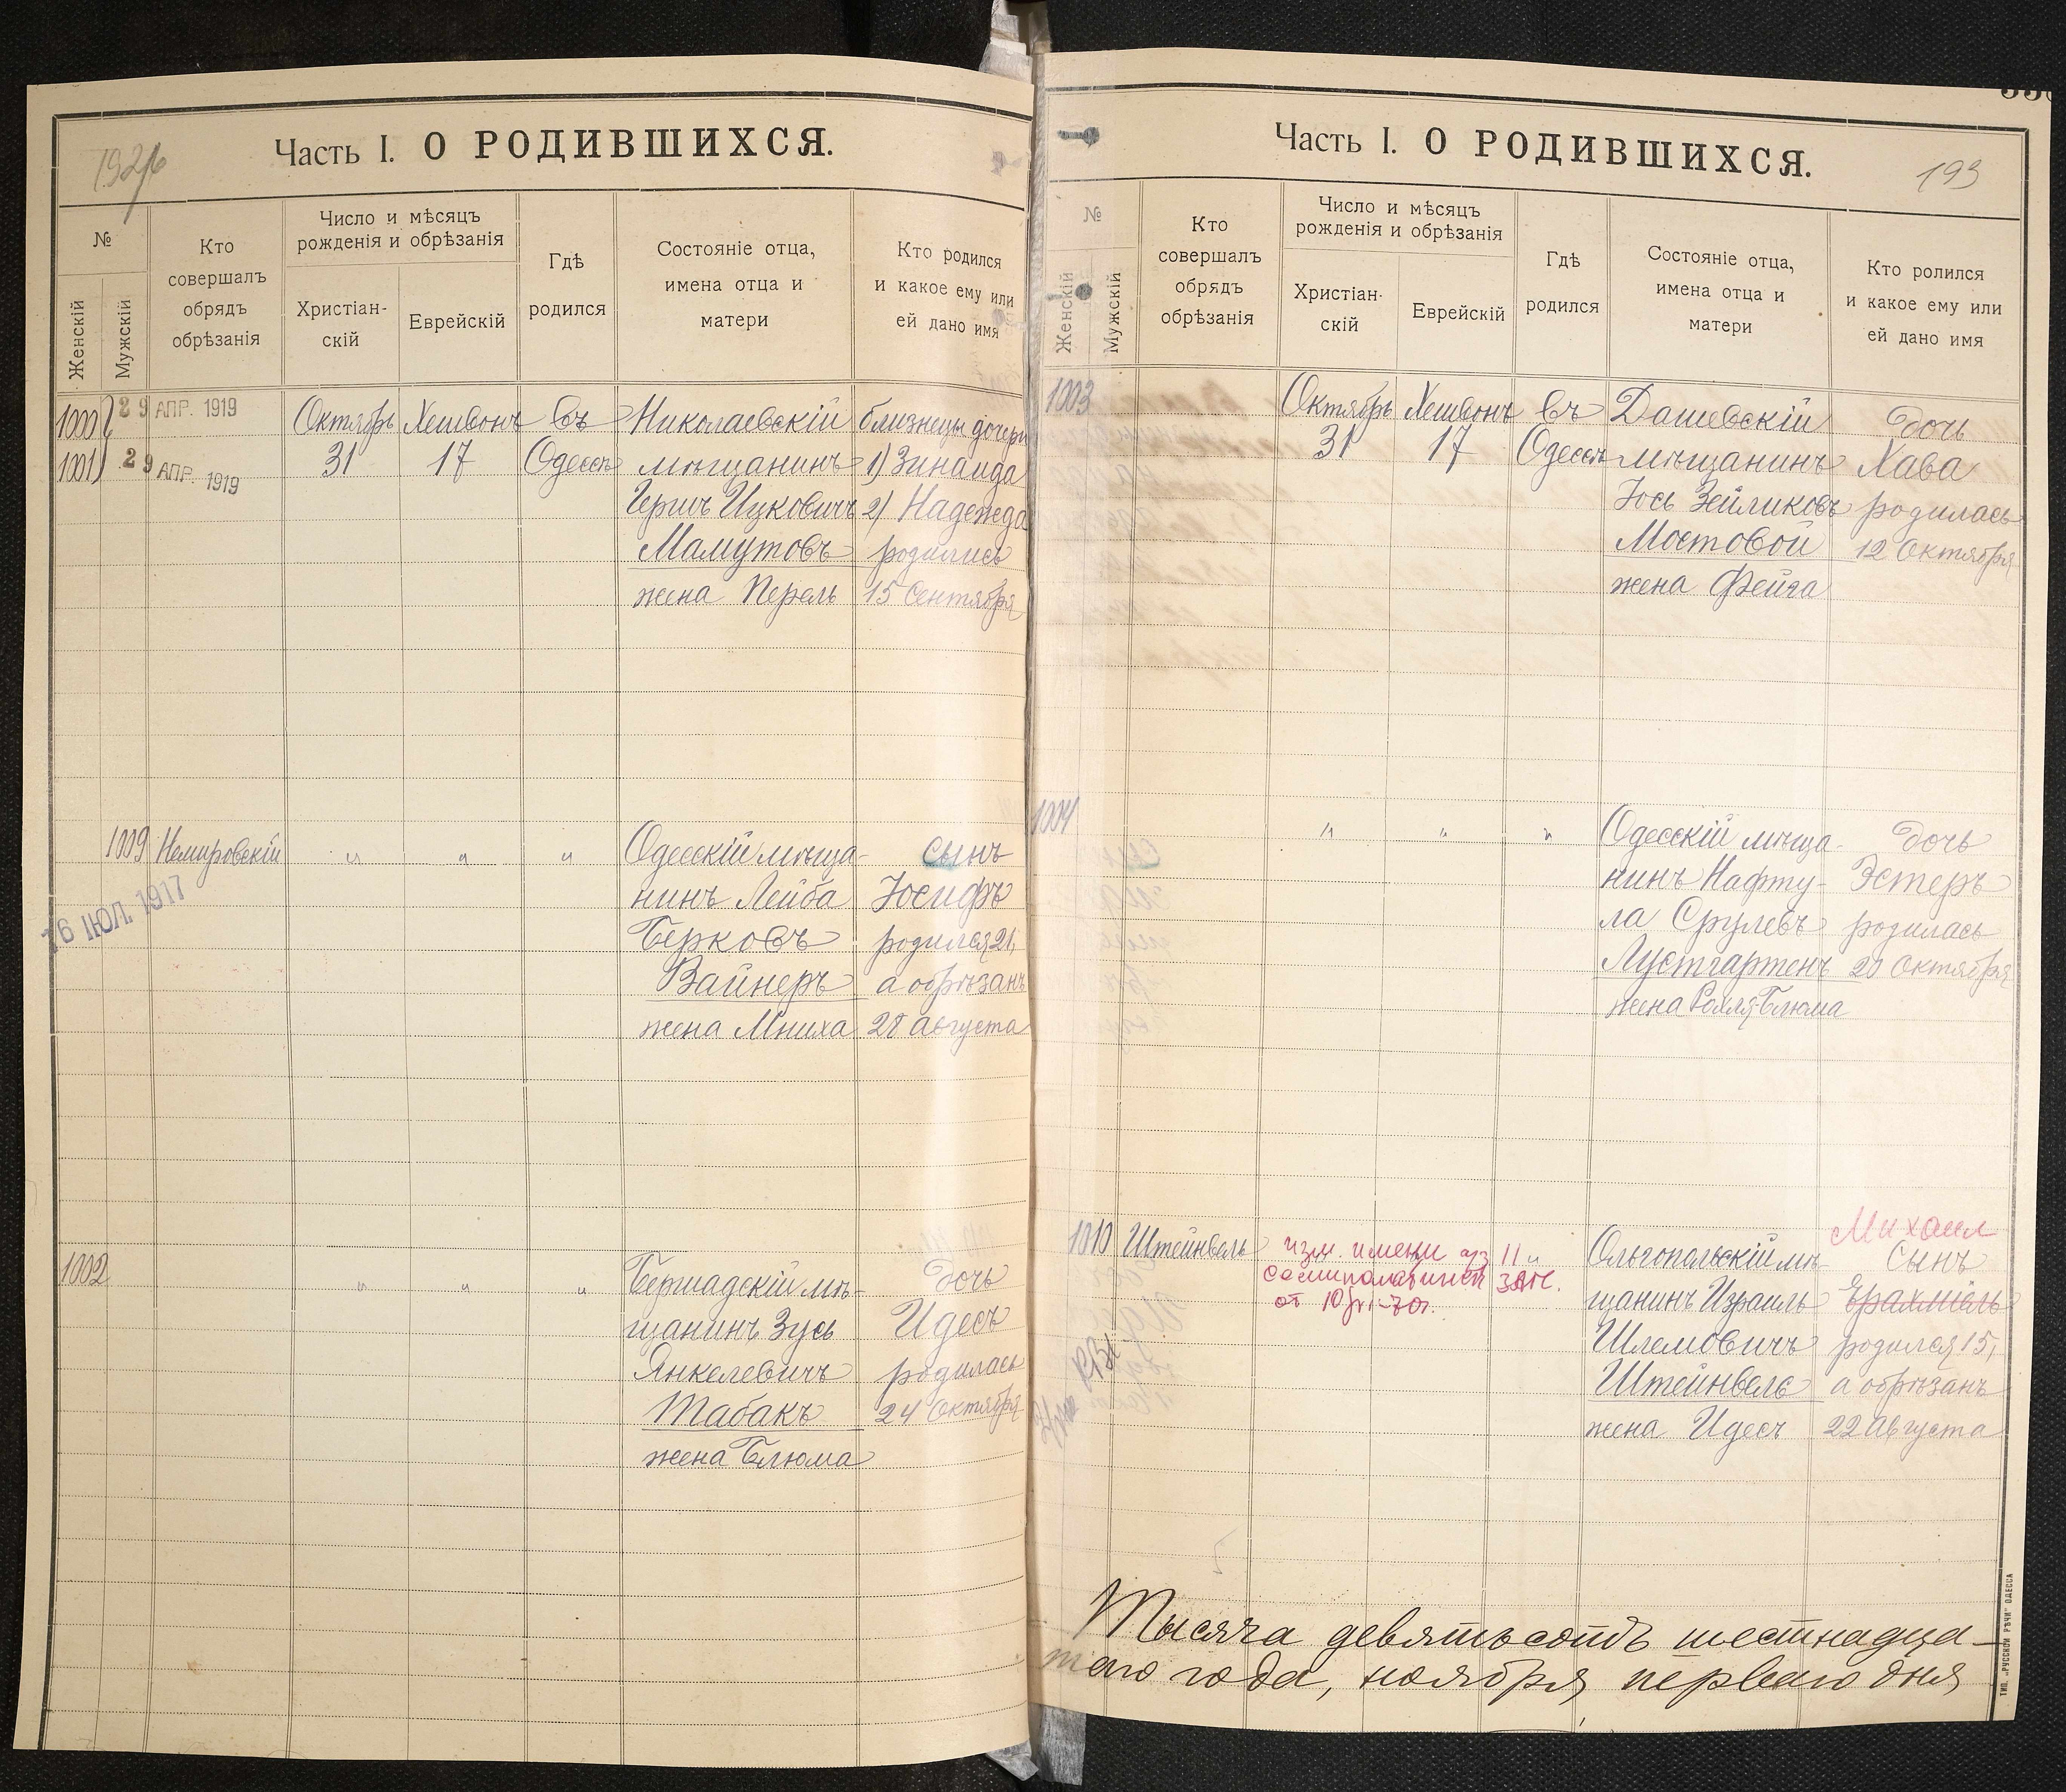 Часть I. О РОДИВШИХСЯ.
№
Женскій
Мужскій
Кто
совершалъ
обрядъ
обрѣзанія
Число и мѣсяцъ
рожденія и обрѣзанія
Христіан-
скій
Еврейскій
Гдѣ
родился
Состояніе отца,
имена отца и
матери
Кто родился
и какое ему или
ей дано имя
1000
29 АПР. 1919
1001
29 АПР. 1919
Октябрь
31
Хешвонъ
17
Въ
Одессѣ
Николаевскій
мѣщанинъ
Гершъ Ицковичъ
Мамутовъ
жена Перель
близнецы дочери
1) Зинаида
2) Надежда
родились
15 Сентября
1009
16 ИЮЛ. 1917
Немировскій
" " "
Одесскій мѣща-
нинъ Лейба
Берковъ
Вайнеръ
жена Мниха
сынъ
Іосифъ
родился 21,
а обрѣзанъ
28 Августа
1002
" " "
Бершадскій мѣ-
щанинъ Зусь
Янкелевичъ
Табакъ
жена Блюма
дочь
Идесъ
родилась
24 Октября
Часть I. О РОДИВШИХСЯ.
193
№
Женскій
Мужскій
Кто
совершалъ
обрядъ
обрѣзанія
Число и мѣсяцъ
рожденія и обрѣзанія
Христіан-
скій
Еврейскій
Гдѣ
родился
Состояніе отца,
имена отца и
матери
Кто ролился
и какое ему или
ей дано имя
1003
Октябрь
31
Хешвонъ
17
Въ
Одессѣ
Дашевскій
мѣщанинъ
Іось Зейликовъ
Мостовой
жена Фейга
дочь
Хава
родилась
12 Октября
1004
" " "
Одесскій мѣща-
нинъ Нафту-
ла Срулевъ
Лустгартенъ
жена Рохля-Блюма
дочь
Эстеръ
родилась
20 Октября
1010
Штейнвель
изм. имени
от 10/VI-70г.
ЗАГС.
Ольгопольскій мѣ-
щанинъ Израиль
Шлемовичъ
Штейнвель
жена Идесъ
Михаил
Сынъ
Ерахміель
родился 15,
а обрѣзанъ
22 Августа
Тысяча девятьсотъ шестнадца-
таго года, ноября перваго дня
ТИП. „РУССКОЙ РѢЧИ" ОДЕССА